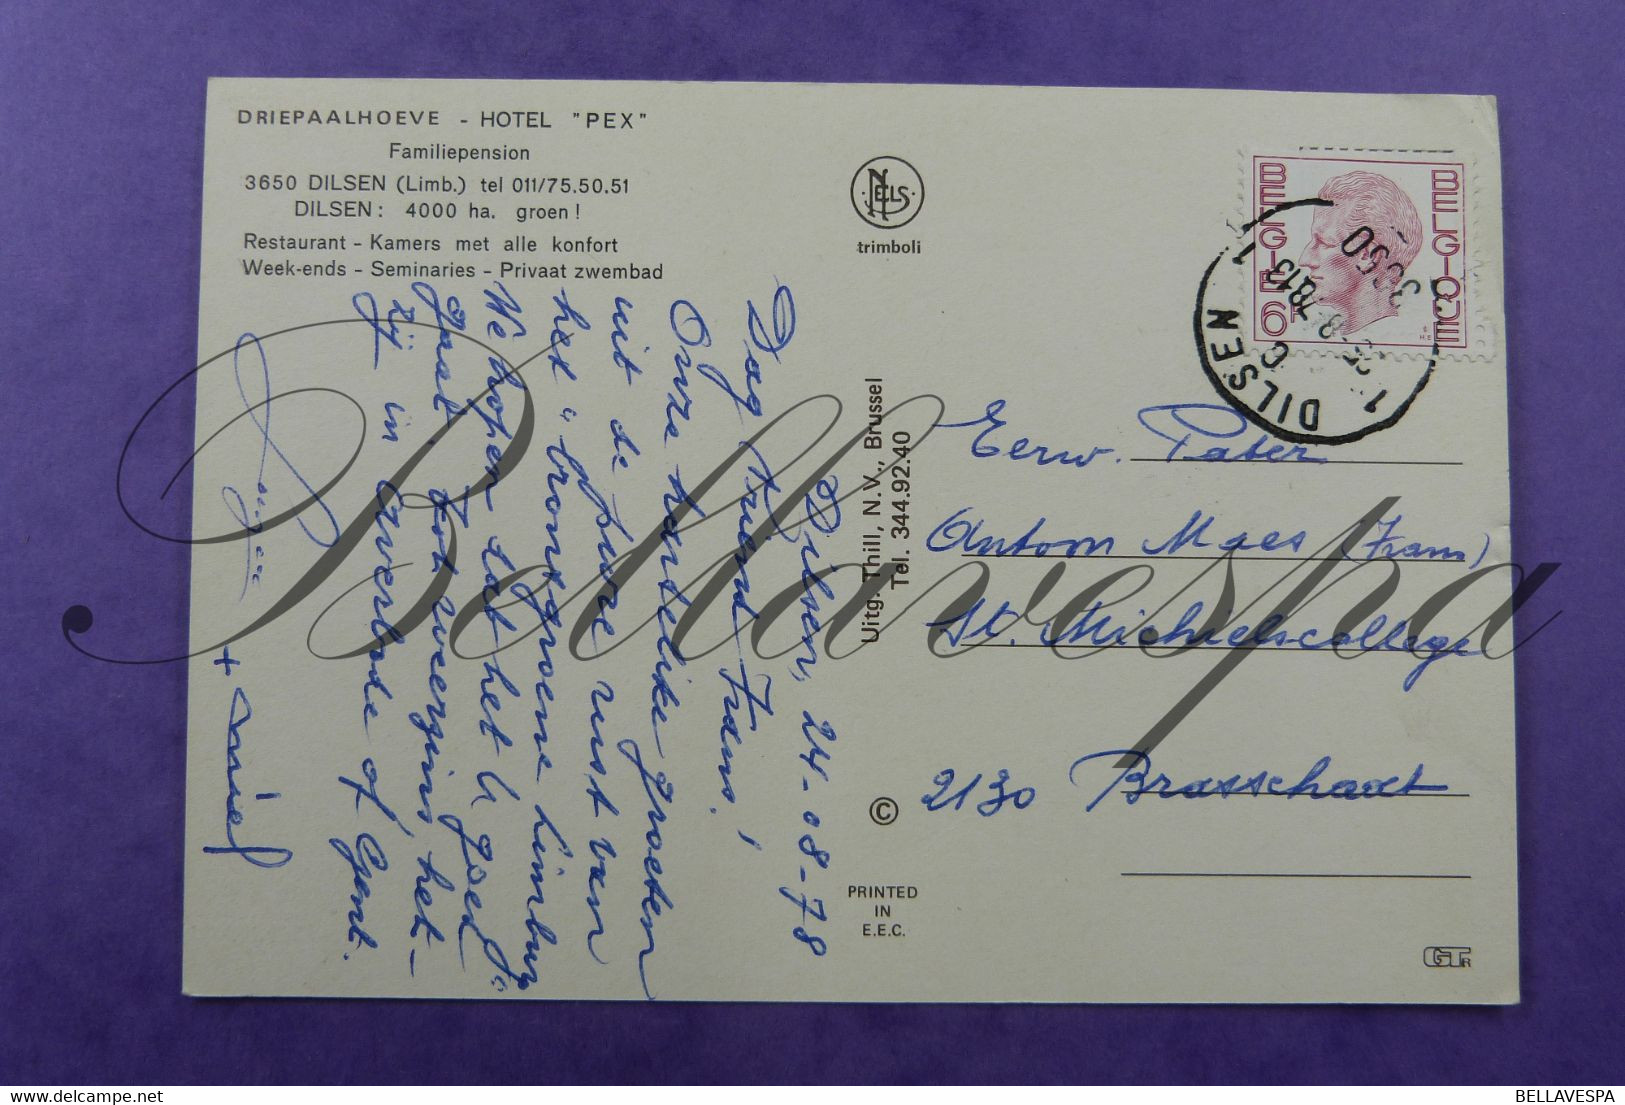 DRIEPAALHOEVE - HOTEL "PEX"
Familiepension
3650 DILSEN (Limb.) tel 011/75.50.51
DILSEN: 4000 ha. groen!
Restaurant - Kamers met alle konfort
Week-ends - Seminaries - Privaat zwembad
NELS
trimboli
BELGIE 6F
BELGIQUE
DILSEN
3650
Dilsen, 24-08-78
Dag Vriend Frans!
Onze hartelijke groeten
uit de pure rust van
het "bronsgroene Limburg"
We hopen dat het U goed
gaat. Tot weerziens, het-
zij in Overbode of Gent.
Uitg. Thill, N.V., Brussel
Tel. 344.92.40
Eerw. Pater
Antoon Maes (Frans)
St. Michielscollege
2130 Brasschaat
©
PRINTED
IN
E.E.C.
Bellavespa
BELLAVESPA